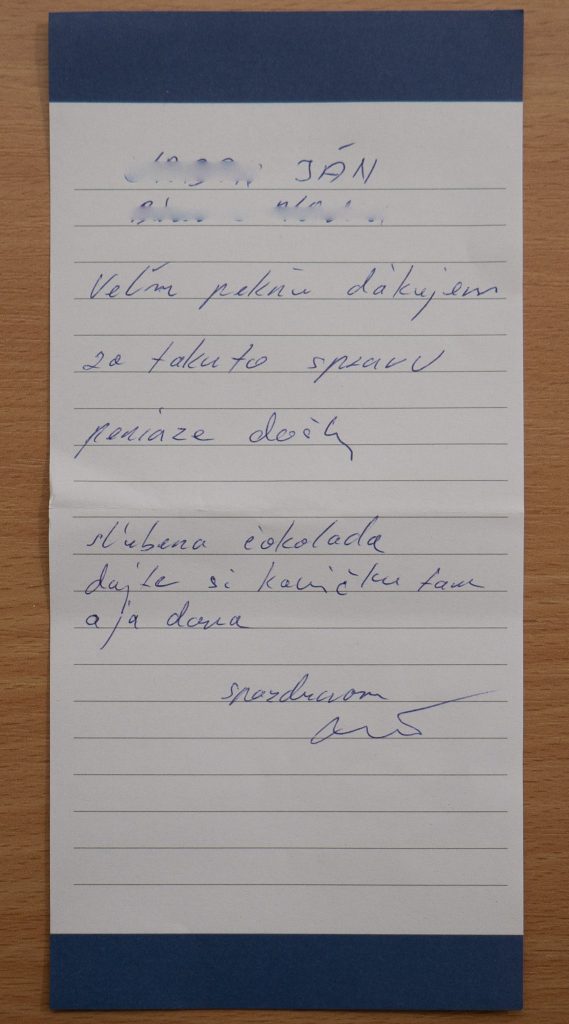 JÁN
Veľm pekňe ďakujem
za takuto spravu
peniaze došly
sľubena čokolada
dajte si kavičku tam
a ja doma
spozdravom